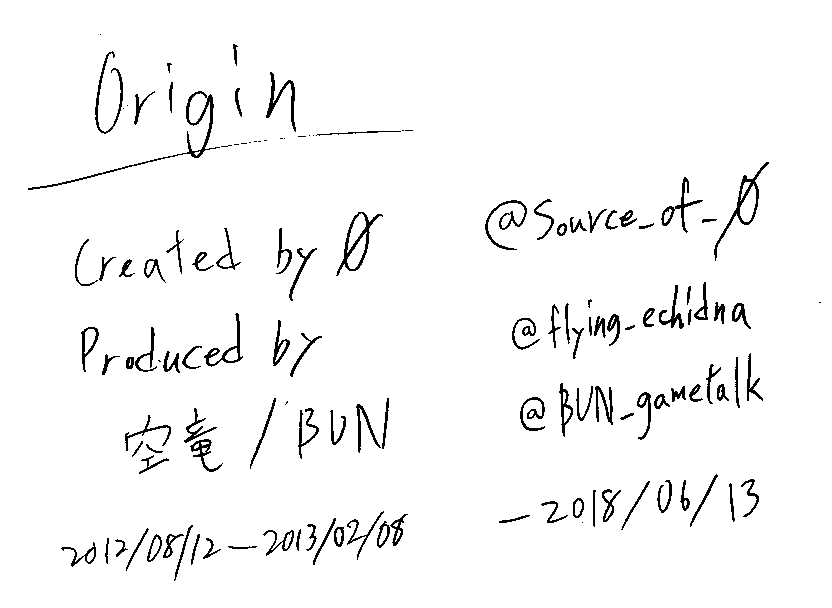 Origin
Created by Ø
Produced by
空竜/BUN
2012/08/12—2013/02/08
@Source_of_Ø
@flying_echidna
@BUN_gametalk
—2018/06/13